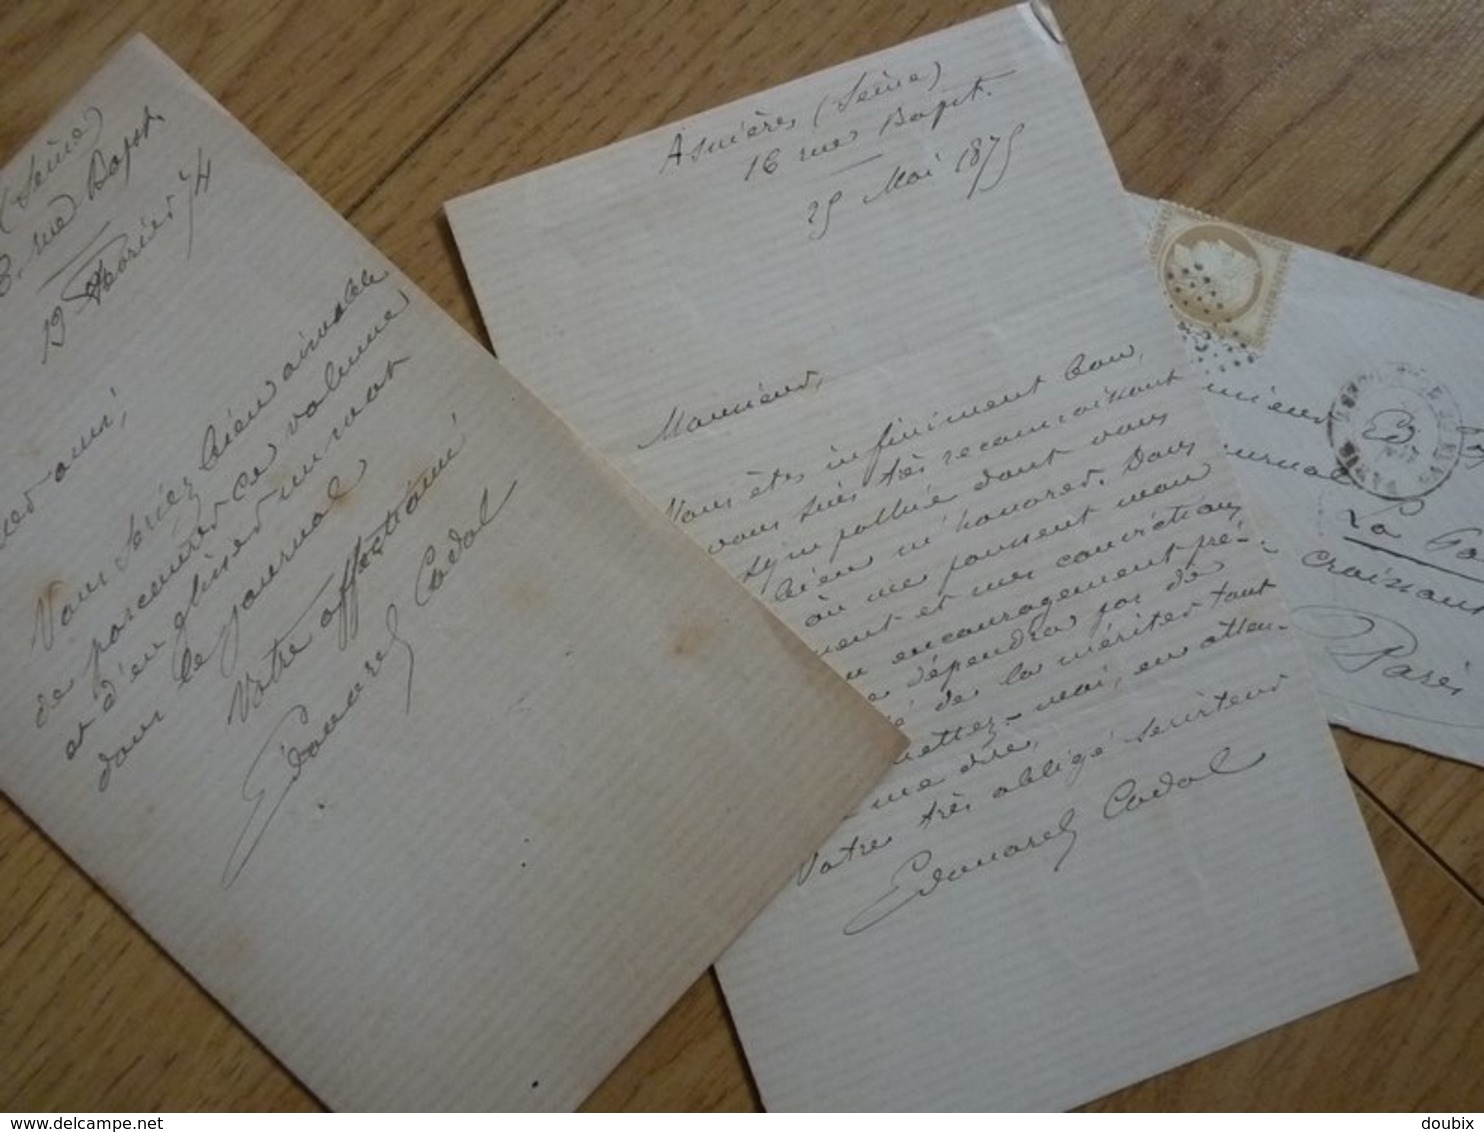 (Seine)
rue Bapst.
19 février 74
ami,
Vous seriez bien aimable
de parcourir ce volume
et d'en glisser un mot
dans le journal
Votre affectionné
Edouard Cadol
Asnières (Seine)
16 rue Bapst.
25 Mai 1875
Monsieur,
Vous êtes infiniment bon,
vous suis très reconnaissant
sympathie dont vous
bien m'honorer. Dans
où me poussent mon
ment et mes convictions
encouragement pré-
dépendra pas de
de la mériter tout
mettez-moi, en atten-
me dire,
Votre très obligé serviteur
Edouard Cadol
La Ga
Croissant
Paris
PARIS
delcampe.net
doubix